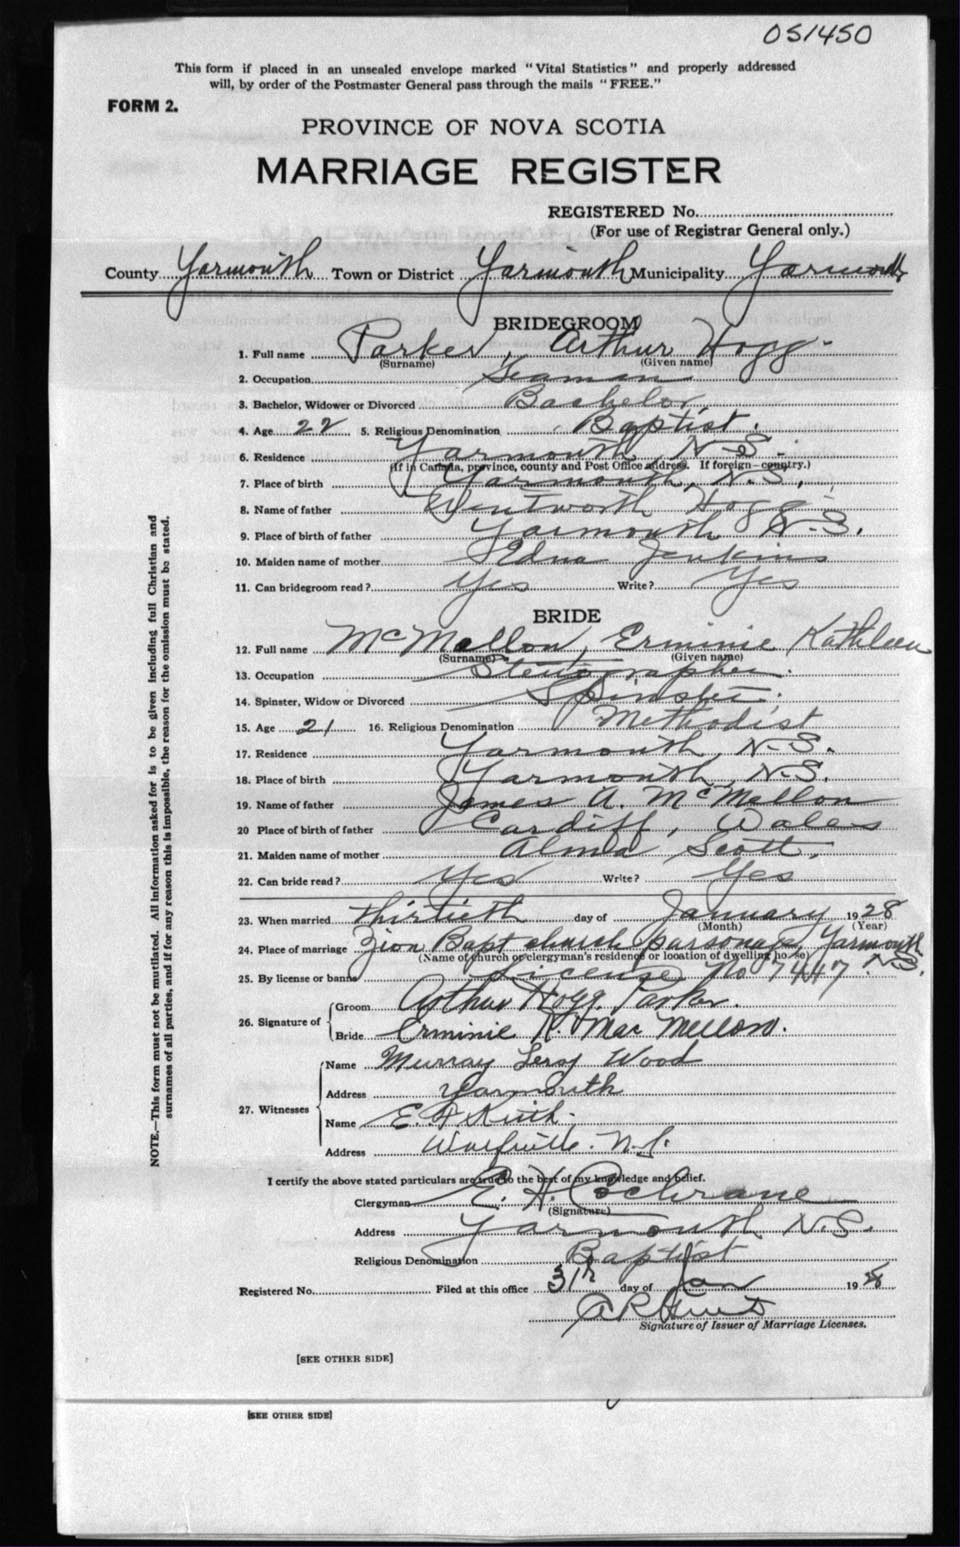 051450
This form if placed in an unsealed envelope marked "Vital Statistics" and properly addressed
will, by order of the Postmaster General pass through the mails "FREE."
FORM 2.
PROVINCE OF NOVA SCOTIA
MARRIAGE REGISTER
REGISTERED No.
(For use of Registrar General only.)
County Yarmouth Town or District Yarmouth Municipality Yarmouth
BRIDEGROOM
1. Full name Parker, Arthur Hogg
(Surname) (Given name)
2. Occupation Seaman
3. Bachelor, Widower or Divorced Bachelor
4. Age 22 5. Religious Denomination Baptist.
6. Residence Yarmouth, N.S.
(If in Canada, province, county and Post Office address. If foreign—country.)
7. Place of birth Yarmouth, N.S.
8. Name of father Wentworth Hogg
9. Place of birth of father Yarmouth N.S.
10. Maiden name of mother Edna Jenkins
11. Can bridegroom read? Yes Write? Yes
BRIDE
12. Full name McMellon, Erminie Kathleen
(Surname) (Given name)
13. Occupation Stenographer
14. Spinster, Widow or Divorced Spinster
15. Age 21 16. Religious Denomination Methodist
17. Residence Yarmouth, N.S.
18. Place of birth Yarmouth, N.S.
19. Name of father James A. McMellon
20 Place of birth of father Cardiff, Wales
21. Maiden name of mother Alma Scott,
22. Can bride read? Yes Write? Yes
23. When married thirtieth day of January 1928
(Month) (Year)
24. Place of marriage Zion Bapt church parsonage, Yarmouth N.S.
(Name of church or clergyman's residence or location of dwelling house)
25. By license or banns License No 7447
26. Signature of Groom Arthur Hogg Parker.
Bride Erminie K. MacMellon.
27. Witnesses Name Murray Leroy Wood
Address Yarmouth
Name E. Keith
Address Wolfville. N.S.
I certify the above stated particulars are true to the best of my knowledge and belief.
Clergyman E. H. Cochrane
(Signature)
Address Yarmouth N.S.
Religious Denomination Baptist
Registered No. Filed at this office 31st day of Jan 1928
A R
Signature of Issuer of Marriage Licenses.
[SEE OTHER SIDE]
[SEE OTHER SIDE]
NOTE.—This form must not be mutilated. All information asked for is to be given including full Christian and
surnames of all parties, and if for any reason this is impossible, the reason for the omission must be stated.